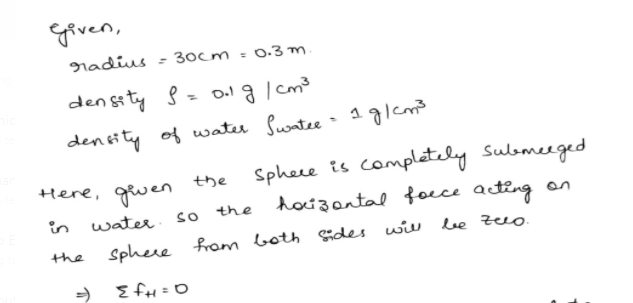 Given,
radius = 30cm = 0.3 m.
density ρ = 0.1 g / cm³
density of water ρwater = 1 g/cm³
Here, given the sphere is completely submerged
in water. so the horizontal force acting on
the sphere from both sides will be zero.
⇒ Σ fH = 0